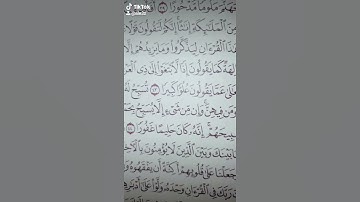 TikTok
جَهَنَّمَ مَلُومًا مَّدْحُورًا ٣٩
مِنَ ٱلْمَلَٰٓئِكَةِ إِنَٰثًا إِنَّكُمْ لَتَقُولُونَ قَوْلًا
هَٰذَا ٱلْقُرْءَانِ لِيَذَّكَّرُوا۟ وَمَا يَزِيدُهُمْ إِلَّا
كَمَا يَقُولُونَ إِذًا لَّٱبْتَغَوْا۟ إِلَىٰ ذِى
عَمَّا يَقُولُونَ عُلُوًّا كَبِيرًا ٤٣ تُسَبِّحُ
وَمَن فِيهِنَّ وَإِن مِّن شَىْءٍ إِلَّا يُسَبِّحُ
إِنَّهُۥ كَانَ حَلِيمًا غَفُورًا ٤٤
بَيْنَكَ وَبَيْنَ ٱلَّذِينَ لَا يُؤْمِنُونَ
جَعَلْنَا عَلَىٰ قُلُوبِهِمْ أَكِنَّةً أَن يَفْقَهُوهُ
رَبَّكَ فِى ٱلْقُرْءَانِ وَحْدَهُۥ وَلَّوْا۟ عَلَىٰٓ